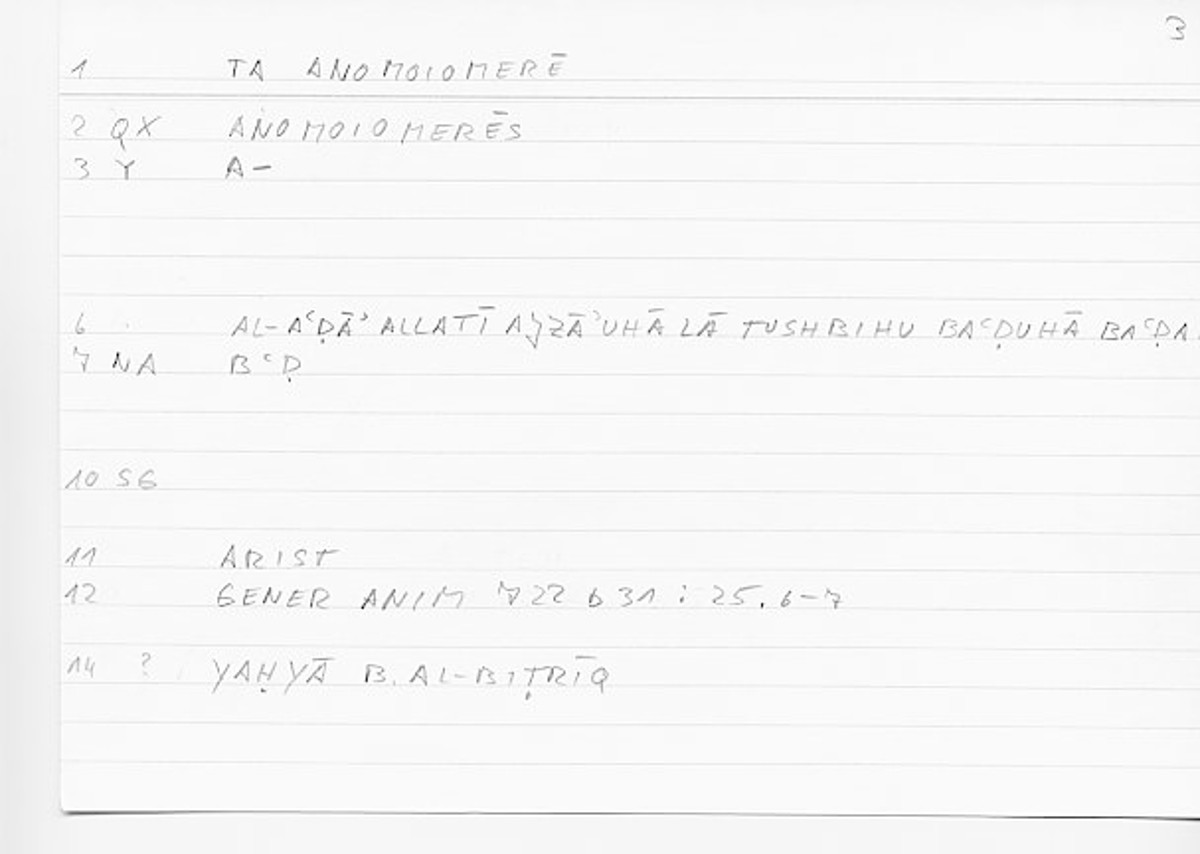 3
1 TA ANOMOIOMERĒ
2 QX ANOMOIOMERĒS
3 Y A-
6 AL-AʿḌĀʾ ALLATĪ AJZĀʾUHĀ LĀ TUSHBIHU BAʿḌUHĀ BAʿḌA
7 NA BʿḌ
10 SG
11 ARIST
12 GENER ANIM 722 b 31 : 25.6-7
14 ? YAḤYĀ B. AL-BIṬRĪQ